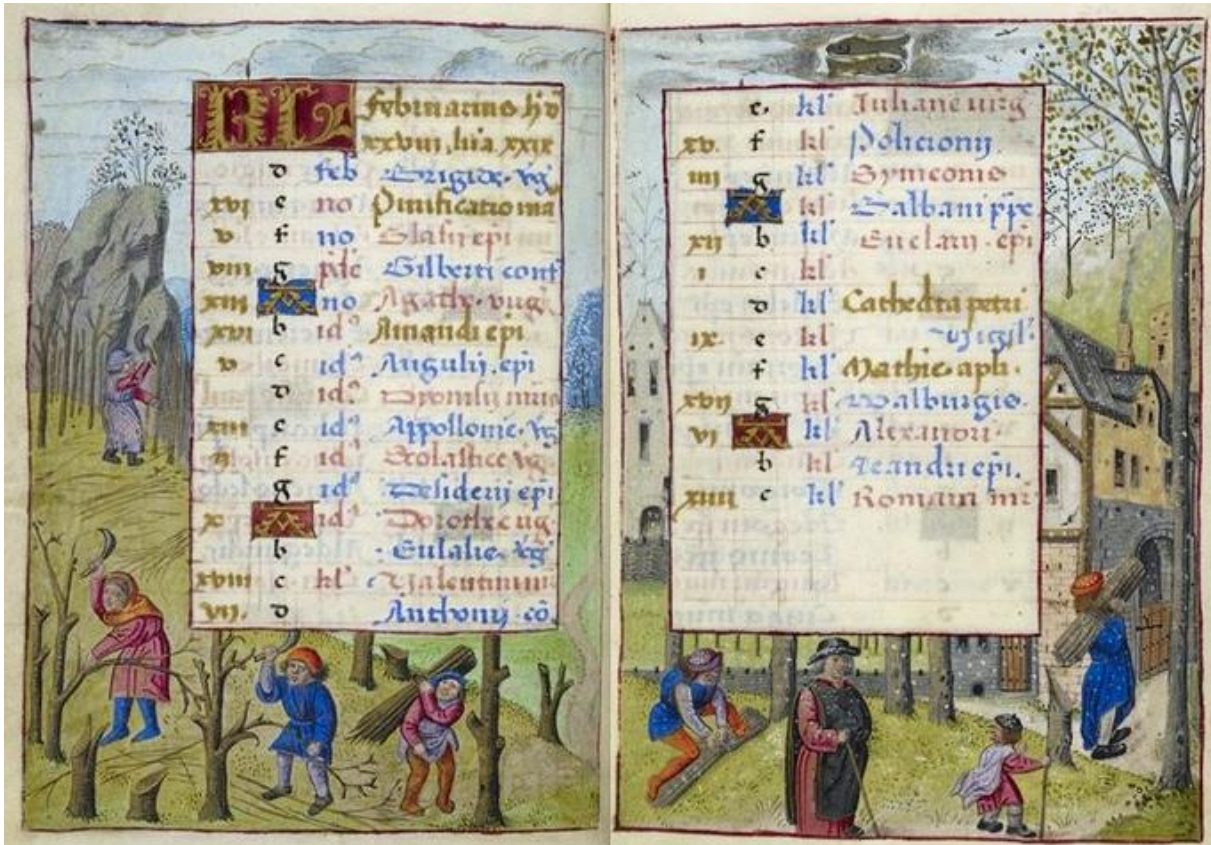 KL februarius hꝫ
xxviii. lūa xxix
d feb Brigide. vḡ
xvi e no Purificatio ma
v. f no Blasii ep̄i
viii g pdc̄ Gilberti conf
xiii A no Agathe. virḡ
xvi b idꝰ Amandi ep̄i
v c idꝰ Anguli. ep̄i
d idꝰ
xiii e idꝰ Appollonie. vḡ
ii f idꝰ Scolastice vḡ
g idꝰ Desiderii ep̄i
x A idꝰ Dorothe. ug.
b Eulalie. vḡ
xviii c kl' Valentini m
vii. d Anthonij. cō.
e. kl' Iuliane uirg̅
xv. f kl Policronij.
iiii g kl' Symeonis
A kl' Galbani ppe
xii b kl' Eucharii. epi
i c kl'
d kl' Cathedra petri
ix. e kl' Vigil'.
f kl' Mathie. apli.
xvii g kl' Walburgis.
vi A kl' Alexandri.
b kl' Leandri ep̄i.
xiiii c kl' Romani mr̄